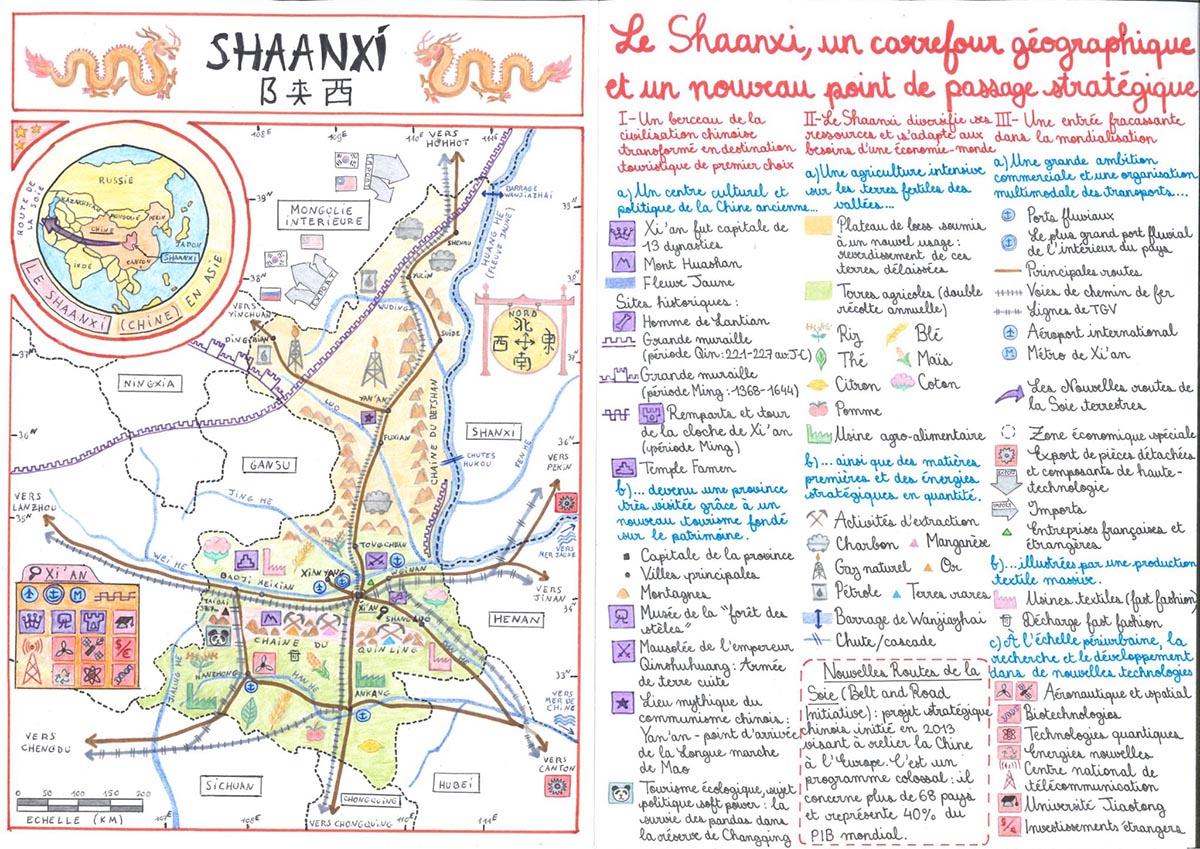 SHAANXI
陕西
RUSSIE
KAZAKHSTAN
MONGOLIE
PEKIN
CHINE
JAPON
SHAANXI
CANTON
INDE
ROUTE DE
LA SOIE
LE SHAANXI (CHINE) EN ASIE
108°E
109°E
VERS
HOHHOT
111°E
IMPORT
EXPORT
MONGOLIE
INTERIEURE
BARRAGE
WANJIAZHAI
39°N
HUANG HE
(FLEUVE JAUNE)
SHENMU
YULIN
38°N
VERS
YINCHUAN
WUDING
DINGBIAN
SUIDE
NORD
北
西
東
南
37°N
37°N
NINGXIA
LUO
YAN'AN
CHAÎNE DU BEISHAN
36°N
FUXIAN
SHANXI
36°N
GANSU
CHUTES
HUKOU
FEN HE
VERS
PEKIN
JING HE
VERS
LANZHOU
35°N
TONGCHUAN
VERS
MER JAUNE
WEI HE
BAOJI
MEIXIAN
XIANYANG
WEINAN
VERS
JINAN
XI'AN
34°N
XI'AN
TAIBAI
SHANGLUO
HENAN
CHAÎNE DU
QUINLING
JIALING HE
HANZHONG
HAN HE
33°N
ANKANG
VERS
MER DE
CHINE
VERS
CHENGDU
VERS
CANTON
SICHUAN
HUBEI
CHONGQING
0 50 100 150 200
ECHELLE (KM)
110°E
108°E
VERS CHONGQING
111°E
Le Shaanxi, un carrefour géographique
et un nouveau point de passage stratégique
I- Un berceau de la
civilisation chinoise
transformé en destination
touristique de premier choix
a) Un centre culturel et
politique de la Chine ancienne...
Xi'an fut capitale de
13 dynasties
Mont Huashan
Fleuve Jaune
Sites historiques :
Homme de Lantian
Grande muraille
(période Qin : 221-227 av. J-C)
Grande muraille
(période Ming : 1368-1644)
Remparts et tour
de la cloche de Xi'an
(période Ming)
Temple Famen
b)... devenu une province
très visitée grâce à un
nouveau tourisme fondé
sur le patrimoine.
Capitale de la province
Villes principales
Montagnes
Musée de la "forêt des
stèles"
Mausolée de l'empereur
Qinshuhuang : Armée
de terre cuite
Lieu mythique du
communisme chinois :
Yan'an - point d'arrivée
de la Longue marche
de Mao
Tourisme écologique, sujet
politique soft power : la
survie des pandas dans
la réserve de Changqing
II- Le Shaanxi diversifie ses
ressources et s'adapte aux
besoins d'une économie-monde
a) Une agriculture intensive
sur les terres fertiles des
vallées...
Plateau de loess soumis
à un nouvel usage :
reverdissement de ces
terres délaissées
Terres agricoles (double
récolte annuelle)
Riz
Blé
Thé
Maïs
Citron
Coton
Pomme
Usine agro-alimentaire
b)... ainsi que des matières
premières et des énergies
stratégiques en quantité.
Activités d'extraction
Charbon
Manganèse
Gaz naturel
Or
Pétrole
Terres rares
Barrage de Wanjiazhai
Chute/cascade
Nouvelles Routes de la
Soie (Belt and Road
Initiative) : projet stratégique
chinois initié en 2013
visant à relier la Chine
à l'Europe. C'est un
programme colossal : il
concerne plus de 68 pays
et représente 40% du
PIB mondial.
III- Une entrée fracassante
dans la mondialisation
a) Une grande ambition
commerciale et une organisation
multimodale des transports...
Ports fluviaux
Le plus grand port fluvial
de l'intérieur du pays
Principales routes
Voies de chemin de fer
Lignes de TGV
Aéroport international
Métro de Xi'an
Les Nouvelles routes de
la Soie terrestres
Zone économique spéciale
Export de pièces détachées
et composants de haute-
technologie
IMPORT
Imports
Entreprises françaises et
étrangères
b)... illustrées par une production
textile massive.
Usines textiles (fast fashion)
Décharge fast fashion
c) À l'échelle périurbaine, la
recherche et le développement
dans de nouvelles technologies
Aéronautique et spatial
Biotechnologies
Technologies quantiques
Énergies nouvelles
Centre national de
télécommunication
Université Jiaotong
Investissements étrangers